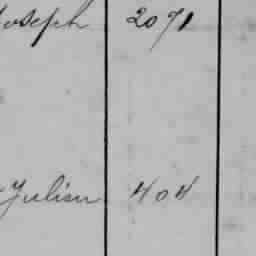 Joseph 2071
Julien 404